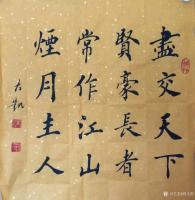 盡交天下
賢豪長者
常作江山
煙月主人